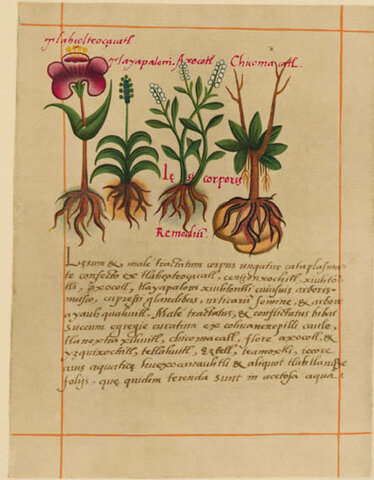 Tlahçolteoçacatl.
Tlayapaloni. Axocotl. Chicomacatl.
Lęsi corporis
Remediũ.
Lęsum & male tractatum corpus ungatur cataplasma-
te confecto ex tlahçolteoçacatl, cenyonxochitl, xiuhto-
tli, axocotl, tlayapaloni xiuhtontli cuiusvis arboris
musco, cupressi glandibus, urticarum semine, & arbore
ayauhquahuitl. Male tractatus, & conflictatus bibat
succum egregie curatum ex cohuanenepilli caule,
tlanextia xihuitl, chicomacatl, flore axocotl, &
yzquixochitl, tetlahuitl, eztetl, teamoxtli,
avis aquaticę huexocanauhtli & aliquot tlatlanquaye
folijs. quę quidem terenda sunt in acetosa aqua.